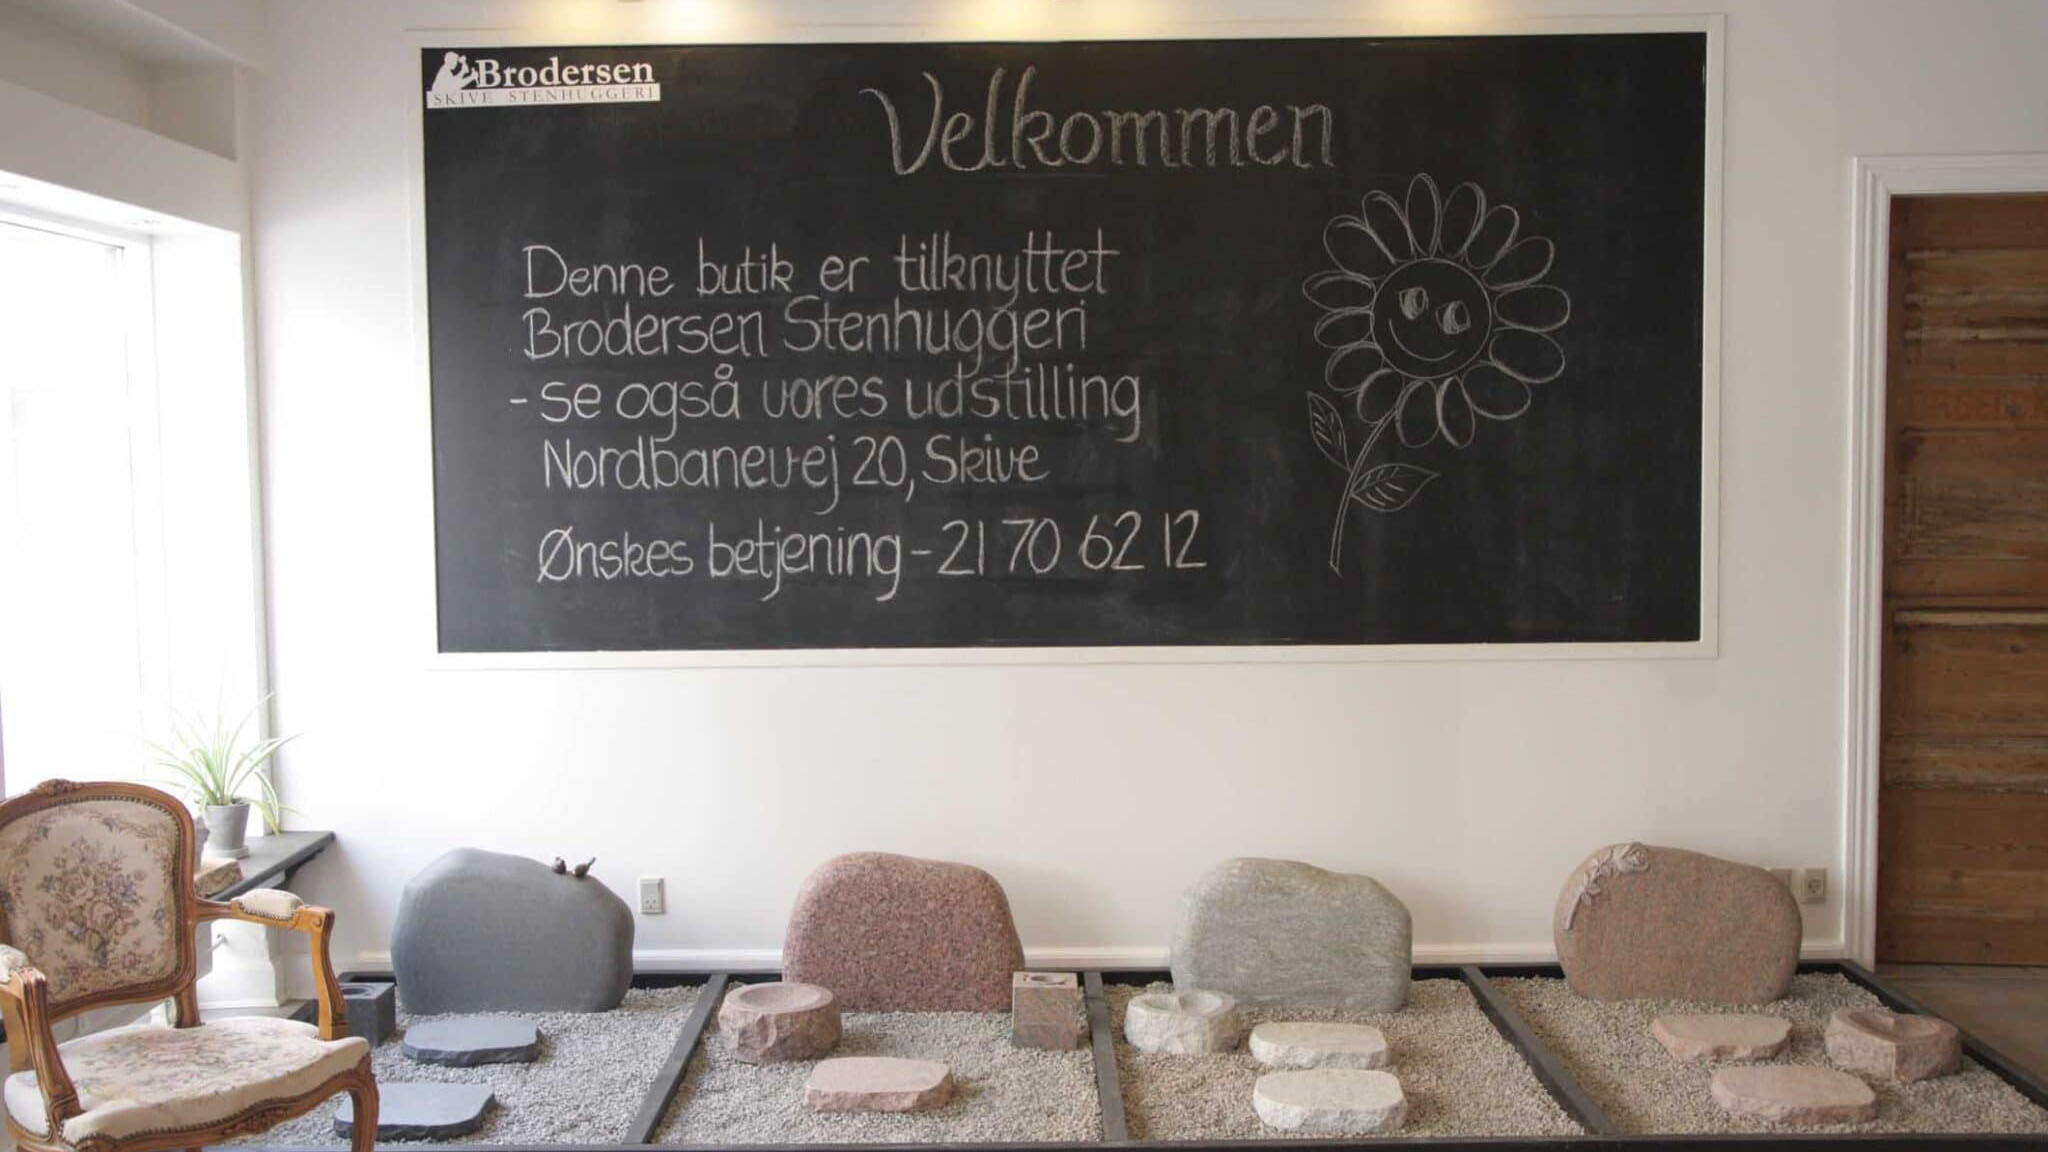 Brodersen
SKIVE STENHUGGERI
Velkommen
Denne butik er tilknyttet
Brodersen Stenhuggeri
- se også vores udstilling
Nordbanevej 20, Skive
Ønskes betjening - 21 70 62 12